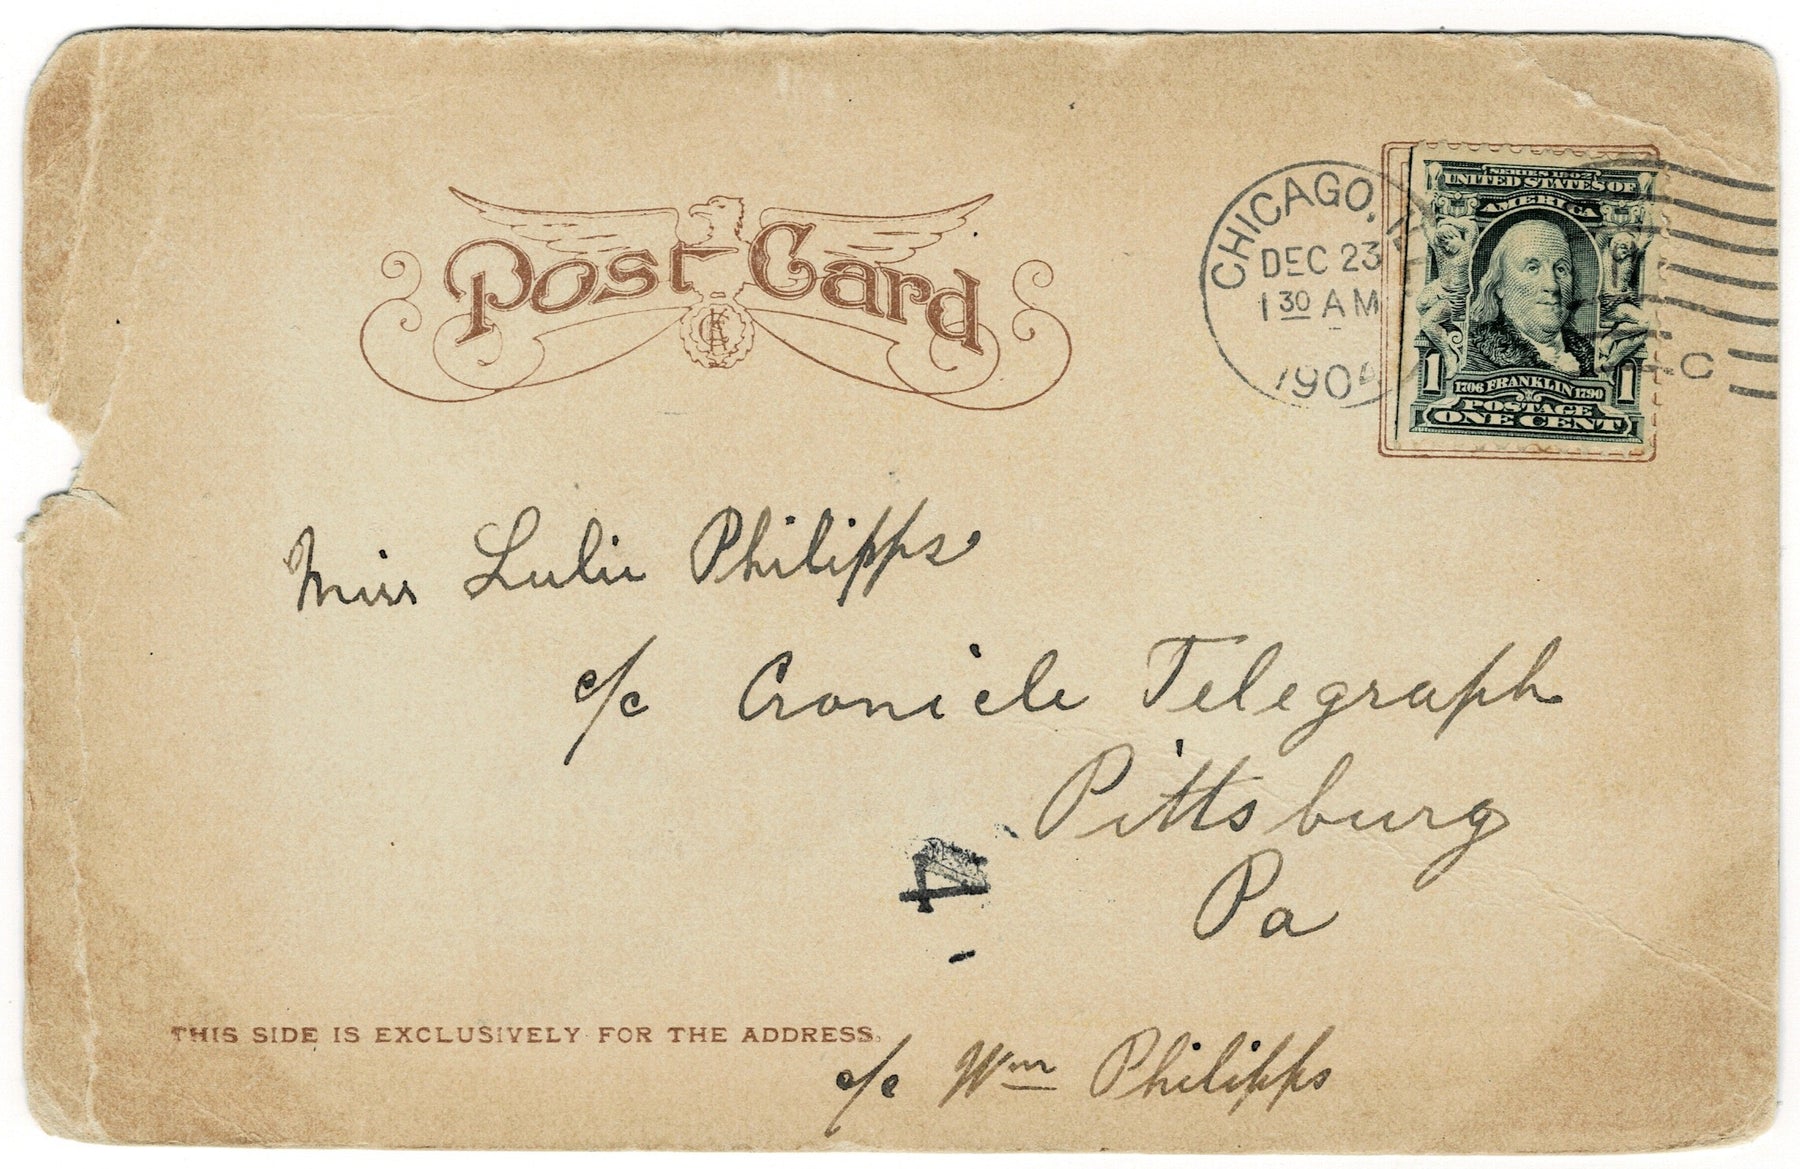 Post Card
CHICAGO, I
DEC 23
1 30 AM
190
SERIES 1902
UNITED STATES OF
AMERICA
1 1706 FRANKLIN 1790 1
POSTAGE
ONE CENT
C
Miss Lulu Philipps
c/c Cronicle Telegraph
Pittsburg
Pa
4
THIS SIDE IS EXCLUSIVELY FOR THE ADDRESS.
c/c Wm Philipps